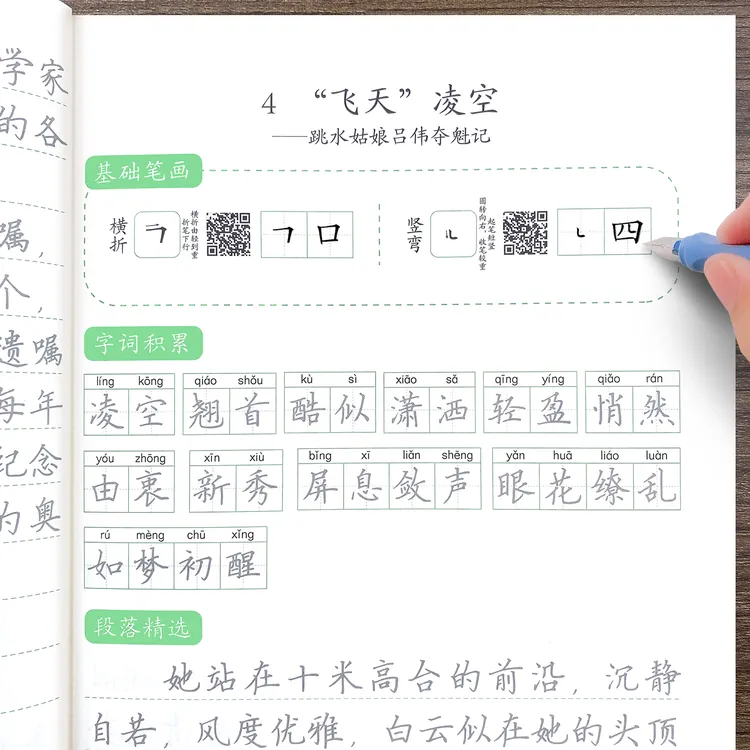 学家
的各
嘱，
个，
遗嘱
每年
纪念
的奥
4 “飞天”凌空
——跳水姑娘吕伟夺魁记
基础笔画
横折
𠃍
横折由轻到重
折笔下行
𠃍 口
竖弯
㇄
起笔轻竖 收笔较重
圆转向右
㇄ 四
字词积累
líng kōng qiáo shǒu kù sì xiāo sǎ qīng yíng qiǎo rán
凌空 翘首 酷似 潇洒 轻盈 悄然
yóu zhōng xīn xiù bǐng xī liǎn shēng yǎn huā liáo luàn
由衷 新秀 屏息敛声 眼花缭乱
rú mèng chū xǐng
如梦初醒
段落精选
她站在十米高台的前沿，沉静
自若，风度优雅，白云似在她的头顶